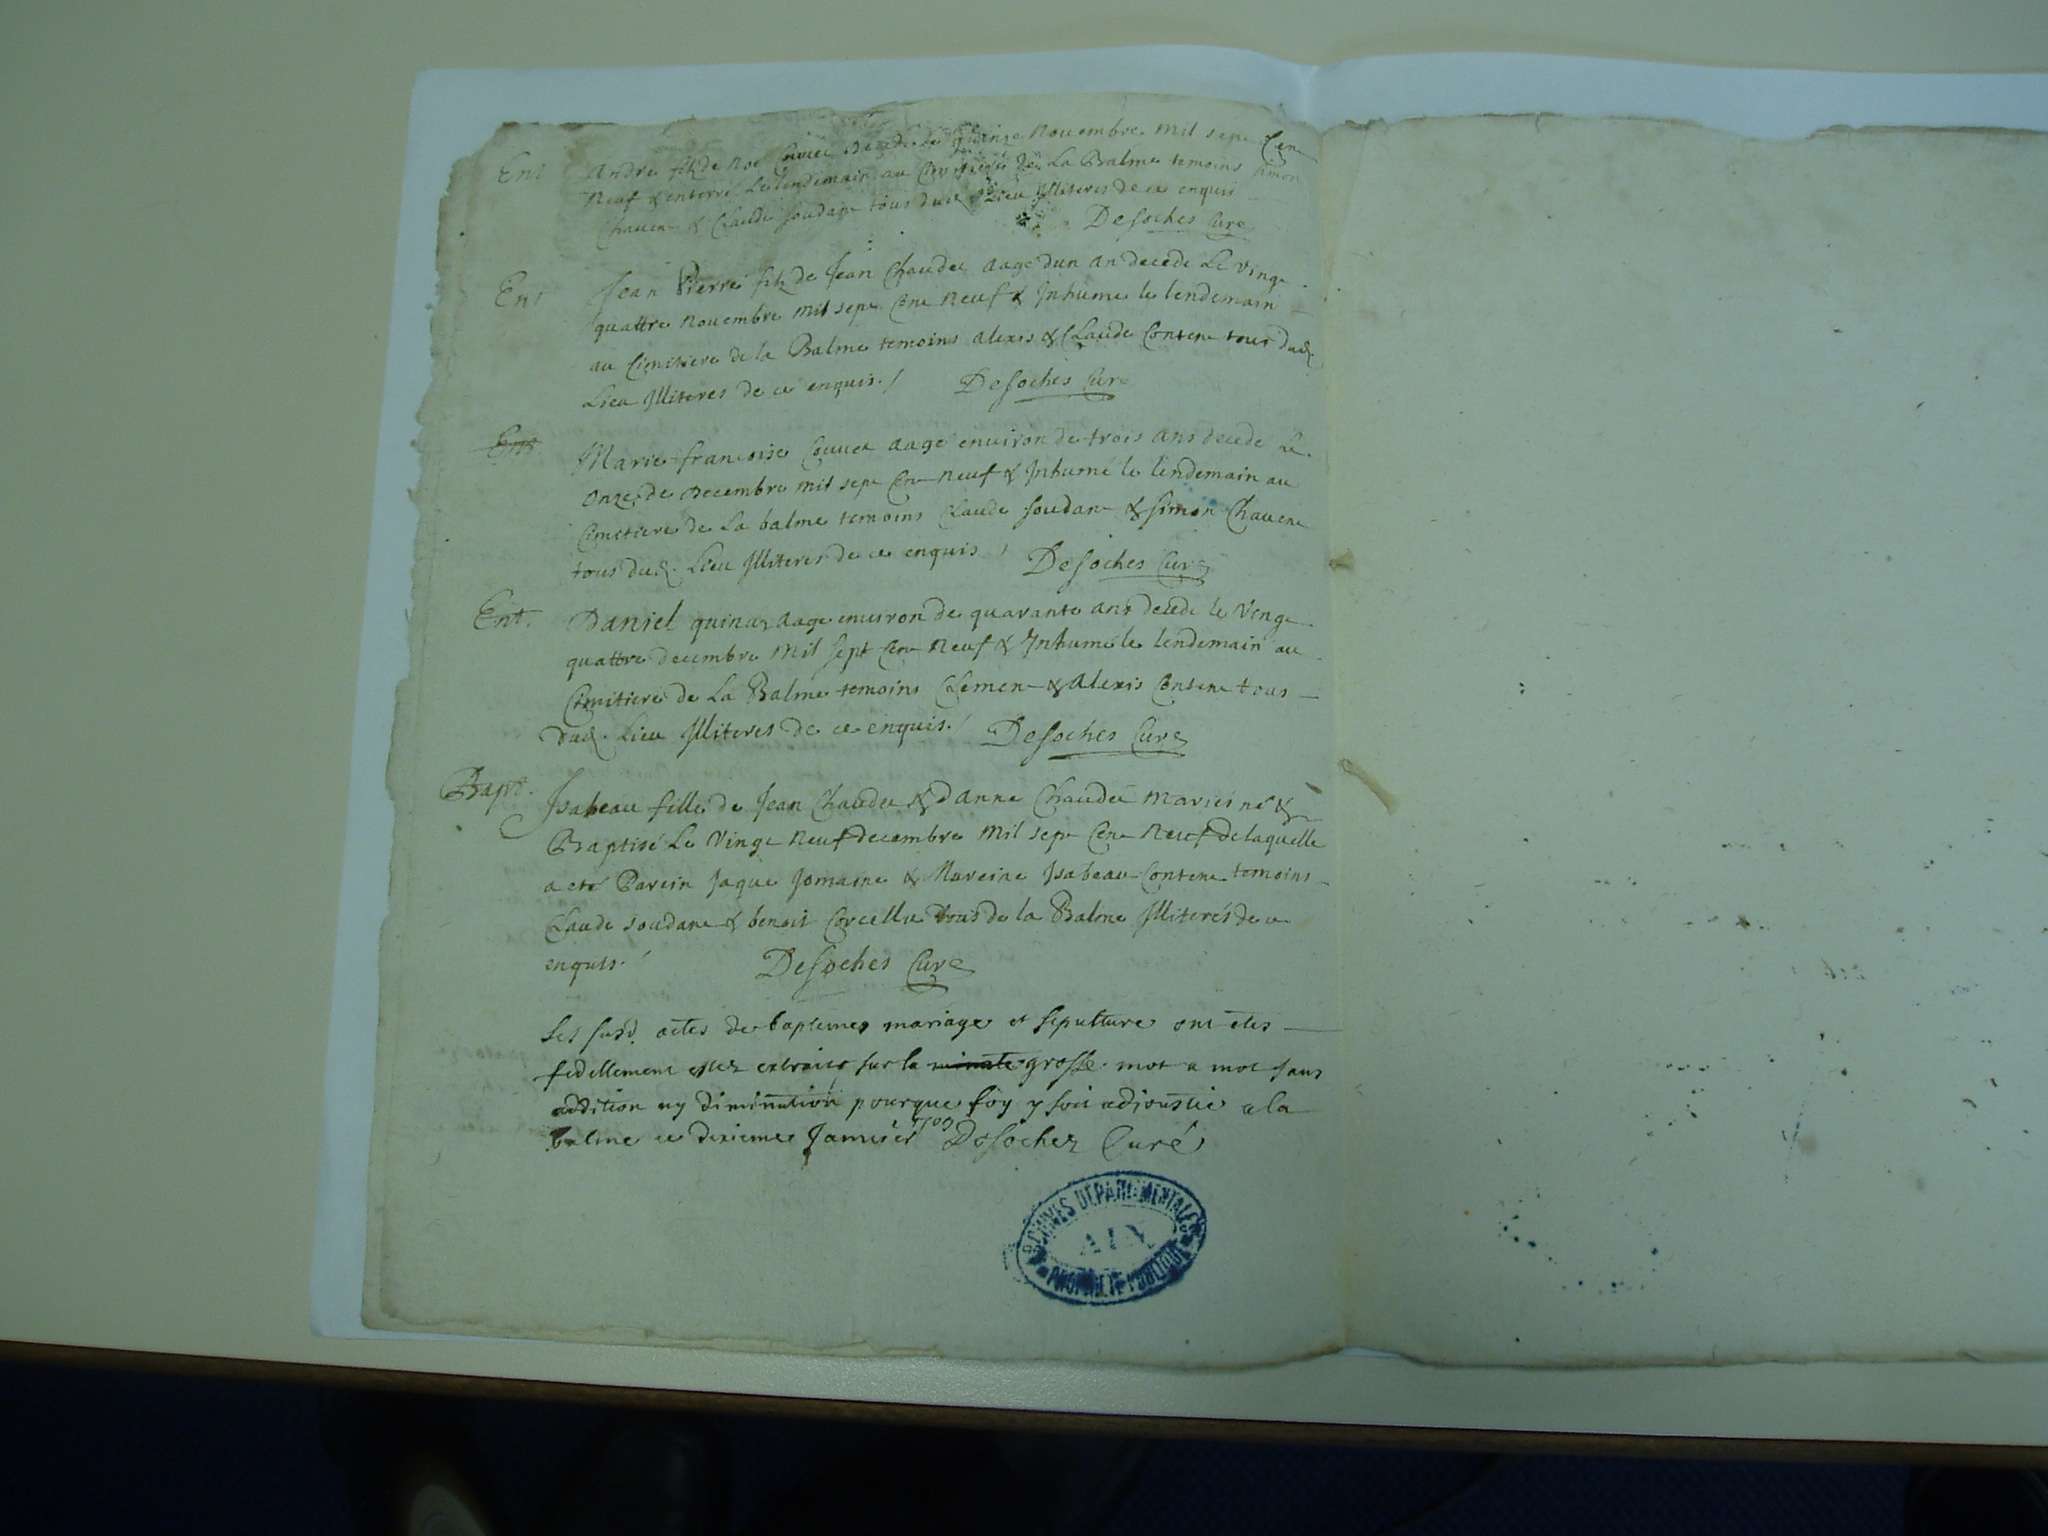 Ent Andre filz de Noe Couvet decede le quinze Novembre mil sept Cent
Neuf & enterré le lendemain au Cimitiere de La Balme temoins Simon
Chavent & Claude Soudane tous dud. Lieu Illiterés de ce enquis
Desoches Cure
Ent Jean Pierre filz de Jean Chaudet aagé dun an decede Le vingt
quattre Novembre mil sept Cent Neuf & Inhumé le lendemain
au Cimitiere de la Balme temoins Alexis & Claude Contene tous dud.
Lieu Illiterés de ce enquis. / Desoches Cure
Ent Marie francoise Couvet aagé environ de trois ans decedé Le
onze de Decembre mil sept Cent Neuf & Inhumé le lendemain au
Cimetiere de La balme temoins Claude Soudane & Simon Chavent
tous dud. Lieu Illiterés de ce enquis / Desoches Cure
Ent. Daniel quinaz aagé environ de quarante ans decedé le Vingt
quattre decembre Mil sept Cent Neuf & Inhumé le lendemain au
Cimitiere de La Balme temoins Clement & Alexis Contene tous
dud. Lieu Illiterés de ce enquis. / Desoches Cure
Bapt. Isabeau fille de Jean Chaudet & d'anne Chaudet Mariés né &
Baptisé Le Vingt Neuf decembre Mil sept Cent Neuf de laquelle
a eté Parein Jaque Jomaine & Mareine Isabeau Contene temoins
Claude Soudane & benoit Corcellu tous de la Balme Illiterés de ce
enquis. / Desoches Cure
Les susd. actes de baptemes mariage et sepulture ont etes
fidellement extraits sur la grosse mot a mot sans
addition ny diminution pourque foy y soit adjoustée a la
balme ce dixieme Janvier 1709 Desoches Curé
ARCHIVES DEPARTEMENTALES
AIN
PROPRIETE PUBLIQUE